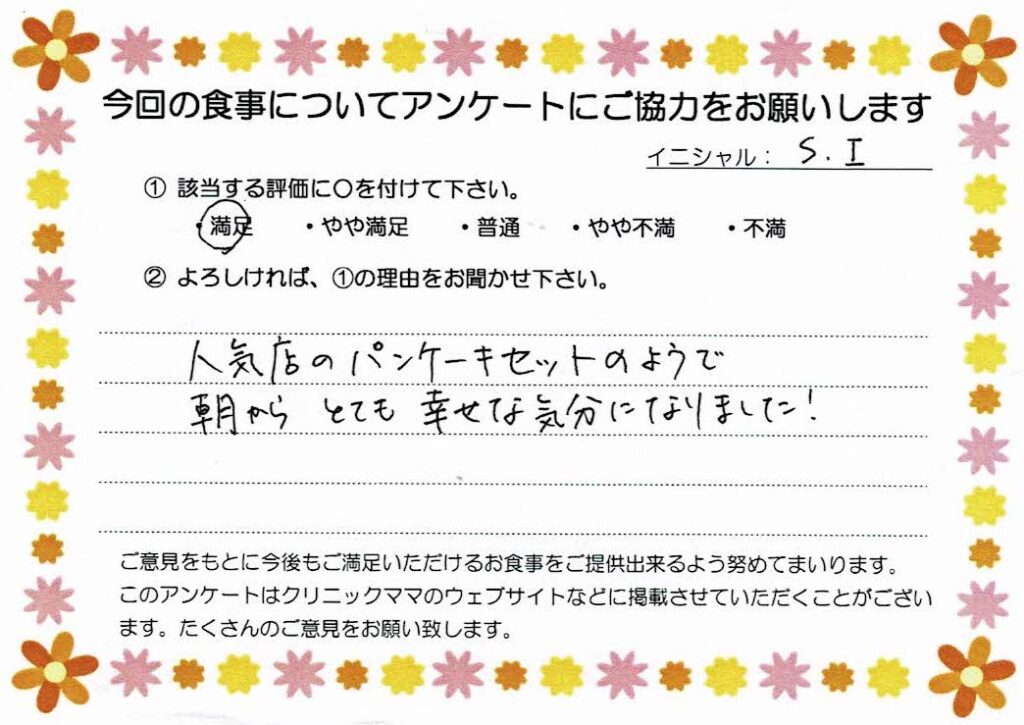 今回の食事についてアンケートにご協力をお願いします
イニシャル： S．I
① 該当する評価に〇を付けて下さい。
・満足 ・やや満足 ・普通 ・やや不満 ・不満
② よろしければ、①の理由をお聞かせ下さい。
人気店のパンケーキセットのようで
朝から とても 幸せな気分になりました！
ご意見をもとに今後もご満足いただけるお食事をご提供出来るよう努めてまいります。
このアンケートはクリニックママのウェブサイトなどに掲載させていただくことがござい
ます。たくさんのご意見をお願い致します。